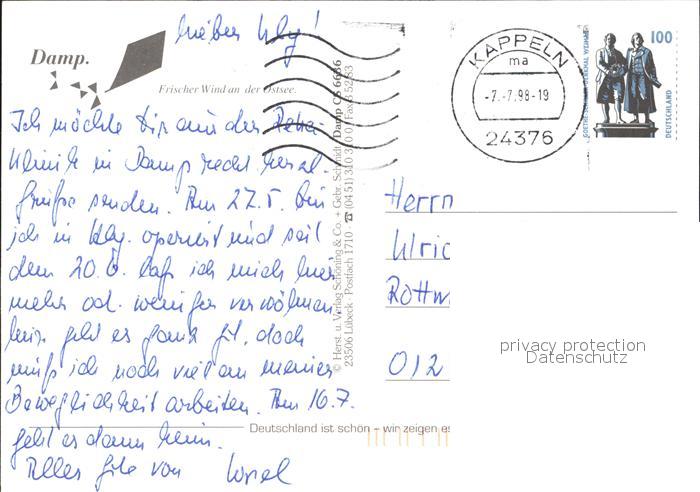 Damp.
Frischer Wind an der Ostsee.
Lieber Uly!
Ich möchte Dir aus der Reha-
Klinik in Damp recht herzl.
Grüße senden. Am 27.5. bin
ich in Hbg. operiert und seit
dem 20.6. laß ich mich hier
mehr od. weniger verwöhnen.
Mir geht es ganz gt, doch
muß ich noch viel an meiner
Beweglichkeit arbeiten. Am 16.7.
geht es dann heim.
Alles Gute von
© Herst. u. Verlag Schöning & Co. + Gebr. Schmidt
Damp CS 6636
23506 Lübeck · Postfach 1710 · ☎ (0451) 310 310
KAPPELN
ma
-7.-7.98-19
24376
100
DEUTSCHLAND
Herrn
Ulric
Rottw
012
privacy protection
Datenschutz
Deutschland ist schön - wir zeigen es